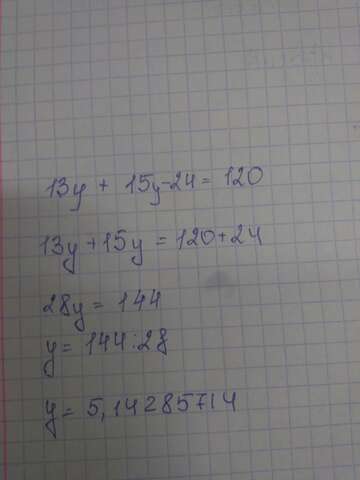 13y + 15y-24 = 120
13y+15y = 120+24
28y = 144
y = 144:28
y = 5,14285714